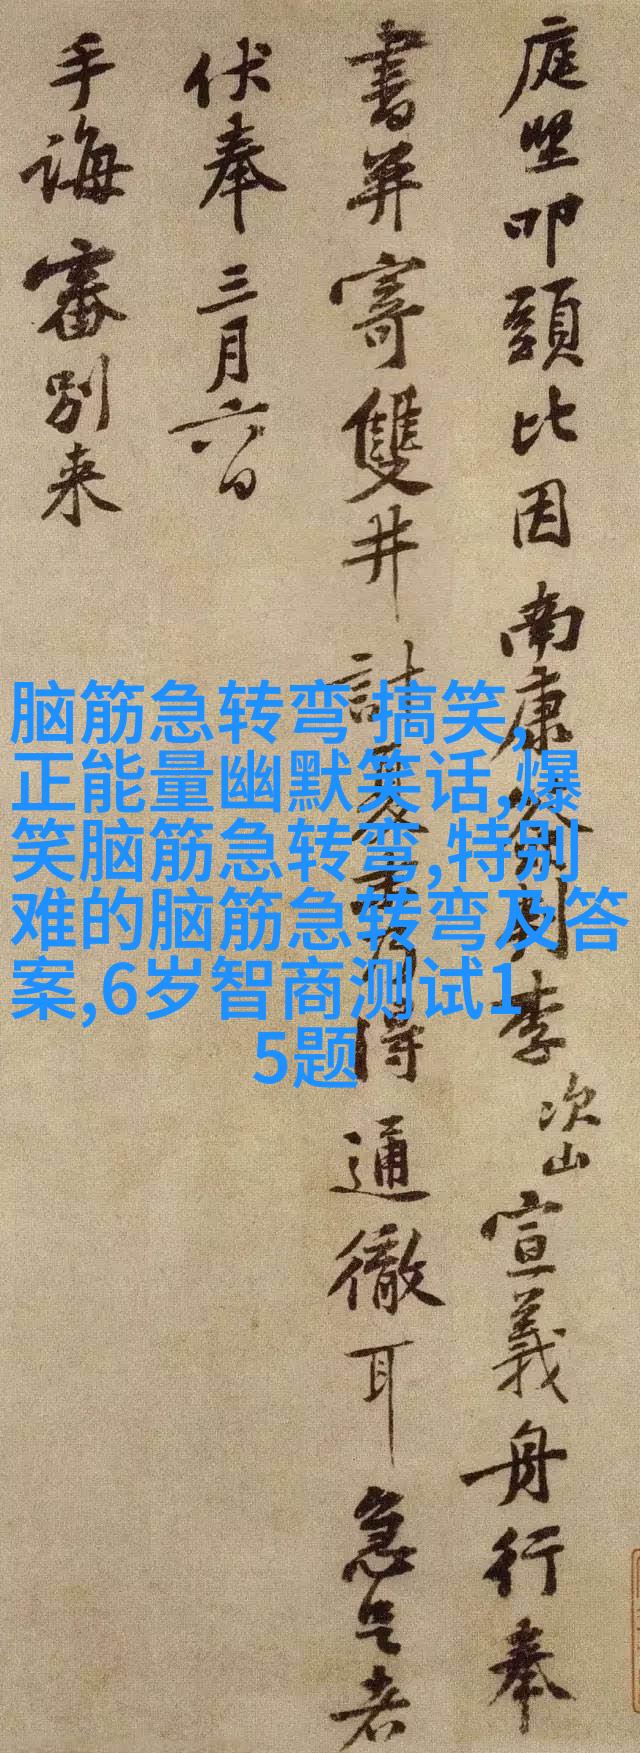 庭堅叩頭比因南康判李次山宣義舟行奉
書并寄雙井計夏得通徹耳急足者
伏奉三月六日
手誨審別来
脑筋急转弯 搞笑,
正能量幽默笑话,爆
笑脑筋急转弯,特别
难的脑筋急转弯及答
案,6岁智商测试1
5题